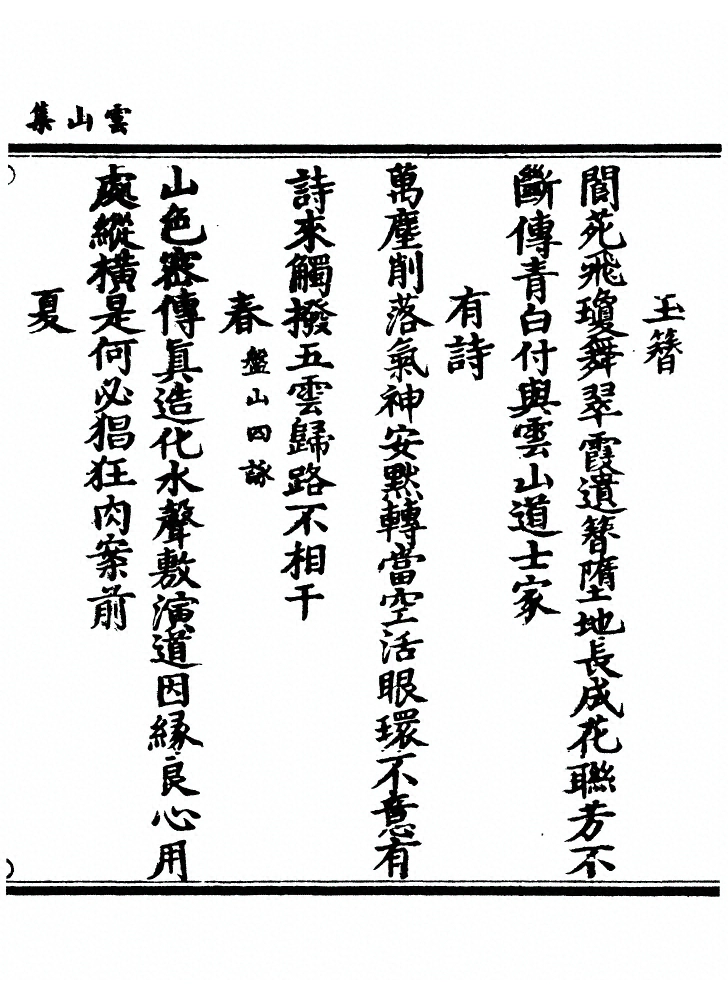 雲山集
玉簪
閬苑飛瓊舞翠霞遺簪墮地長成花聯芳不
斷傳青白付與雲山道士家
有詩
萬塵削落氣神安默轉當空活眼環不意有
詩來觸撥五雲歸路不相干
春 盤山四詠
山色密傳眞造化水聲敷演道因緣良心用
處縱橫是何必猖狂肉案前
夏